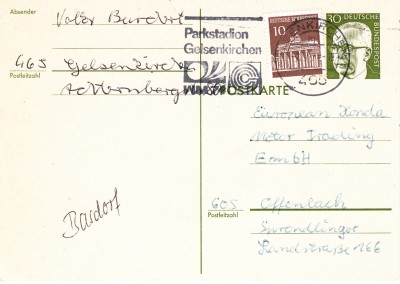 Absender
Volker Bardorf
465 Gelsenkirchen
Postleitzahl
Parkstadion
Gelsenkirchen
10
DEUTSCHE BUNDESPOST
30
DEUTSCHE BUNDESPOST
465
POSTKARTE
European Honda
Motor Trading
GmbH
605 Offenbach
Postleitzahl
Sprendlinger
Landstraße 166
Bardorf